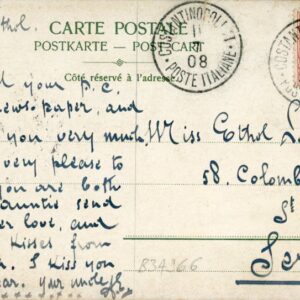 CARTE POSTALE
POSTKARTE — POST CARD
Côté réservé à l'adresse.
COSTANTINOPOLI
II
08
POSTE ITALIANE
thol.
d your p.c.
ews-paper, and
you very much
very pleased to
you are both
auntie send
er love, and
kisses from
I kiss you
ear. Your uncle
Miss Ethol
58. Colomb
St
Jer
834366